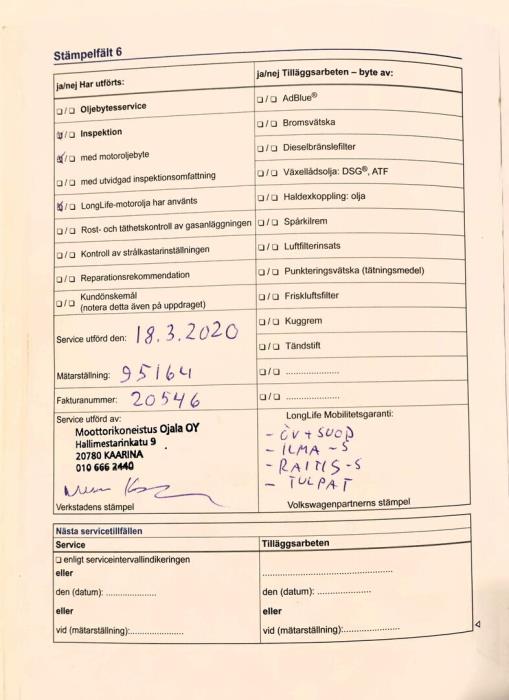 Stämpelfält 6
ja/nej Har utförts:
❏/❏ Oljebytesservice
❏/❏ Inspektion
❏/❏ med motoroljebyte
❏/❏ med utvidgad inspektionsomfattning
❏/❏ LongLife-motorolja har använts
❏/❏ Rost- och täthetskontroll av gasanläggningen
❏/❏ Kontroll av strålkastarinställningen
❏/❏ Reparationsrekommendation
❏/❏ Kundönskemål
(notera detta även på uppdraget)
Service utförd den: 18.3.2020
Mätarställning: 95164
Fakturanummer: 20546
Service utförd av:
Moottorikoneistus Ojala OY
Hallimestarinkatu 9
20780 KAARINA
010 666 2440
Verkstadens stämpel
ja/nej Tilläggsarbeten – byte av:
❏/❏ AdBlue®
❏/❏ Bromsvätska
❏/❏ Dieselbränslefilter
❏/❏ Växellådsolja: DSG®, ATF
❏/❏ Haldexkoppling: olja
❏/❏ Spårkilrem
❏/❏ Luftfilterinsats
❏/❏ Punkteringsvätska (tätningsmedel)
❏/❏ Friskluftsfilter
❏/❏ Kuggrem
❏/❏ Tändstift
❏/❏ ....................
❏/❏ ....................
LongLife Mobilitetsgaranti:
- ÖV + SUOD
- ILMA -S
- RAITIS -S
- TULPAT
Volkswagenpartnerns stämpel
Nästa servicetillfällen
Service
❏ enligt serviceintervallindikeringen
eller
den (datum): ...................
eller
vid (mätarställning):....................
Tilläggsarbeten
................................................
den (datum): ....................
eller
vid (mätarställning):.....................